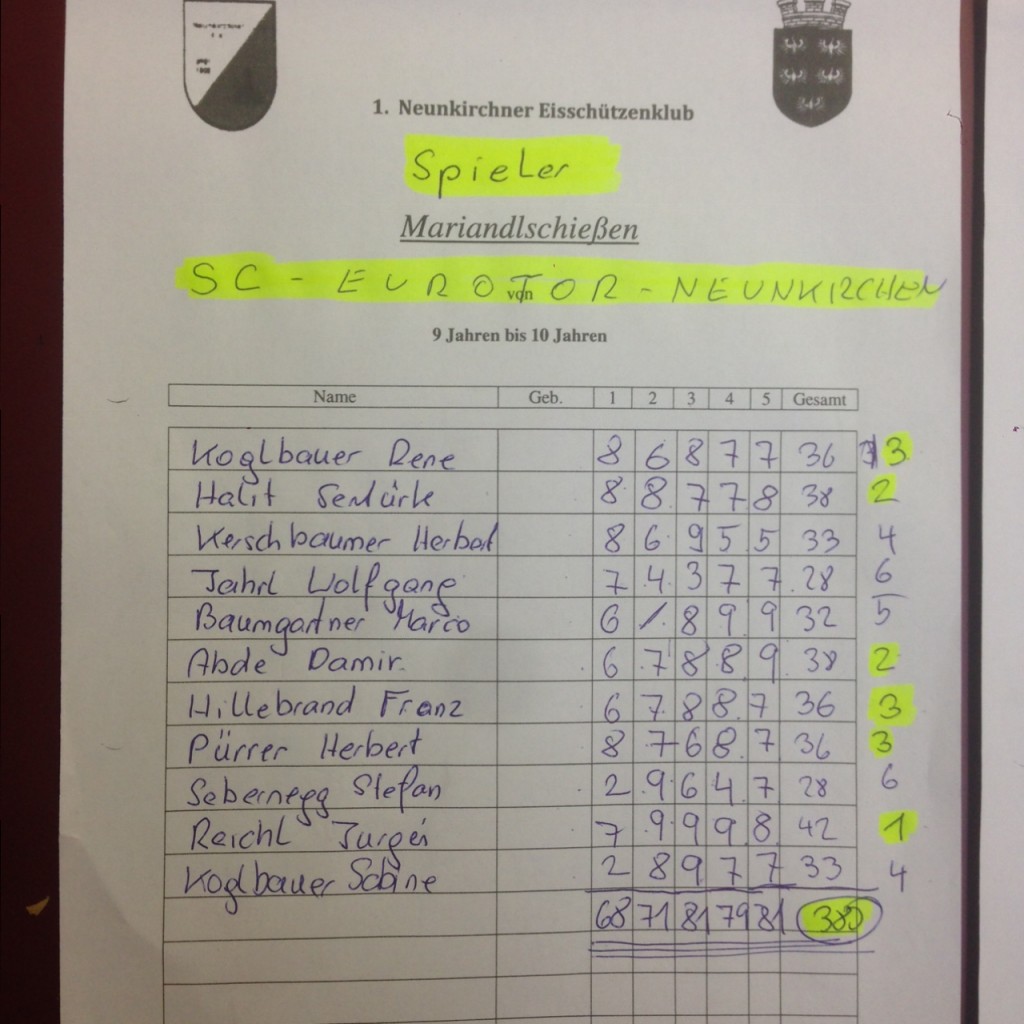 1. Neunkirchner Eisschützenklub
Spieler
Mariandlschießen
SC - EUROTOR - NEUNKIRCHEN
von
9 Jahren bis 10 Jahren
Name Geb. 1 2 3 4 5 Gesamt
Koglbauer Rene 8 6 8 7 7 36 3
Halit 8 8 7 7 8 38 2
Kerschbaumer Herbert 8 6 9 5 5 33 4
Jahrl Wolfgang 7 4 3 7 7 28 6
Baumgartner Marco 6 / 8 9 9 32 5
Abde Damir 6 7 8 8 9 38 2
Hillebrand Franz 6 7 8 8 7 36 3
Pürrer Herbert 8 7 6 8 7 36 3
Sebernegg Stefan 2 9 6 4 7 28 6
Reichl 7 9 9 9 8 42 1
Koglbauer Sabine 2 8 9 7 7 33 4
68 71 81 79 81 380